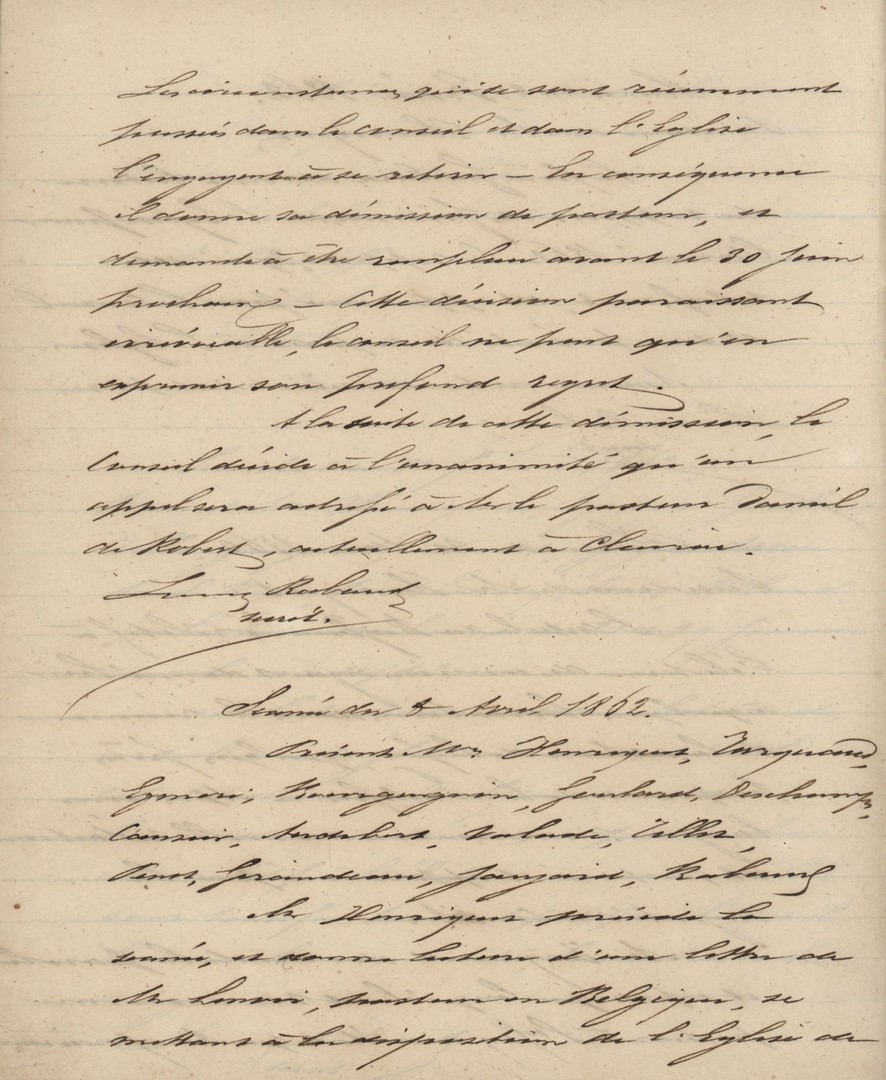 Les circonstances qui se sont récemment
passées dans le Conseil et dans l'Eglise
l'engagent à se retirer — En conséquence
il donne sa démission de pasteur, et
demande à être remplacé avant le 30 Juin
prochain — Cette décision paraissant
irrévocable, le conseil ne peut qu'en
exprimer son profond regret.
A la suite de cette démission, le
Conseil décide à l'unanimité qu'un
appel sera adressé à Mr le pasteur Daniel
de Robert, actuellement à
Rabaud
secrét.
Séance du 8 Avril 1862.
Présents Mrs Henriquet, Turquand,
Bourguignon, Goulard, Deschamps,
Audebert, Valade, Tillet,
Penot, Giraudeau, Jaujard, Rabaud
Mr Henriquet préside la
séance, et donne lecture d'une lettre de
Mr pasteur en Belgique, se
mettant à la disposition de l'Eglise de